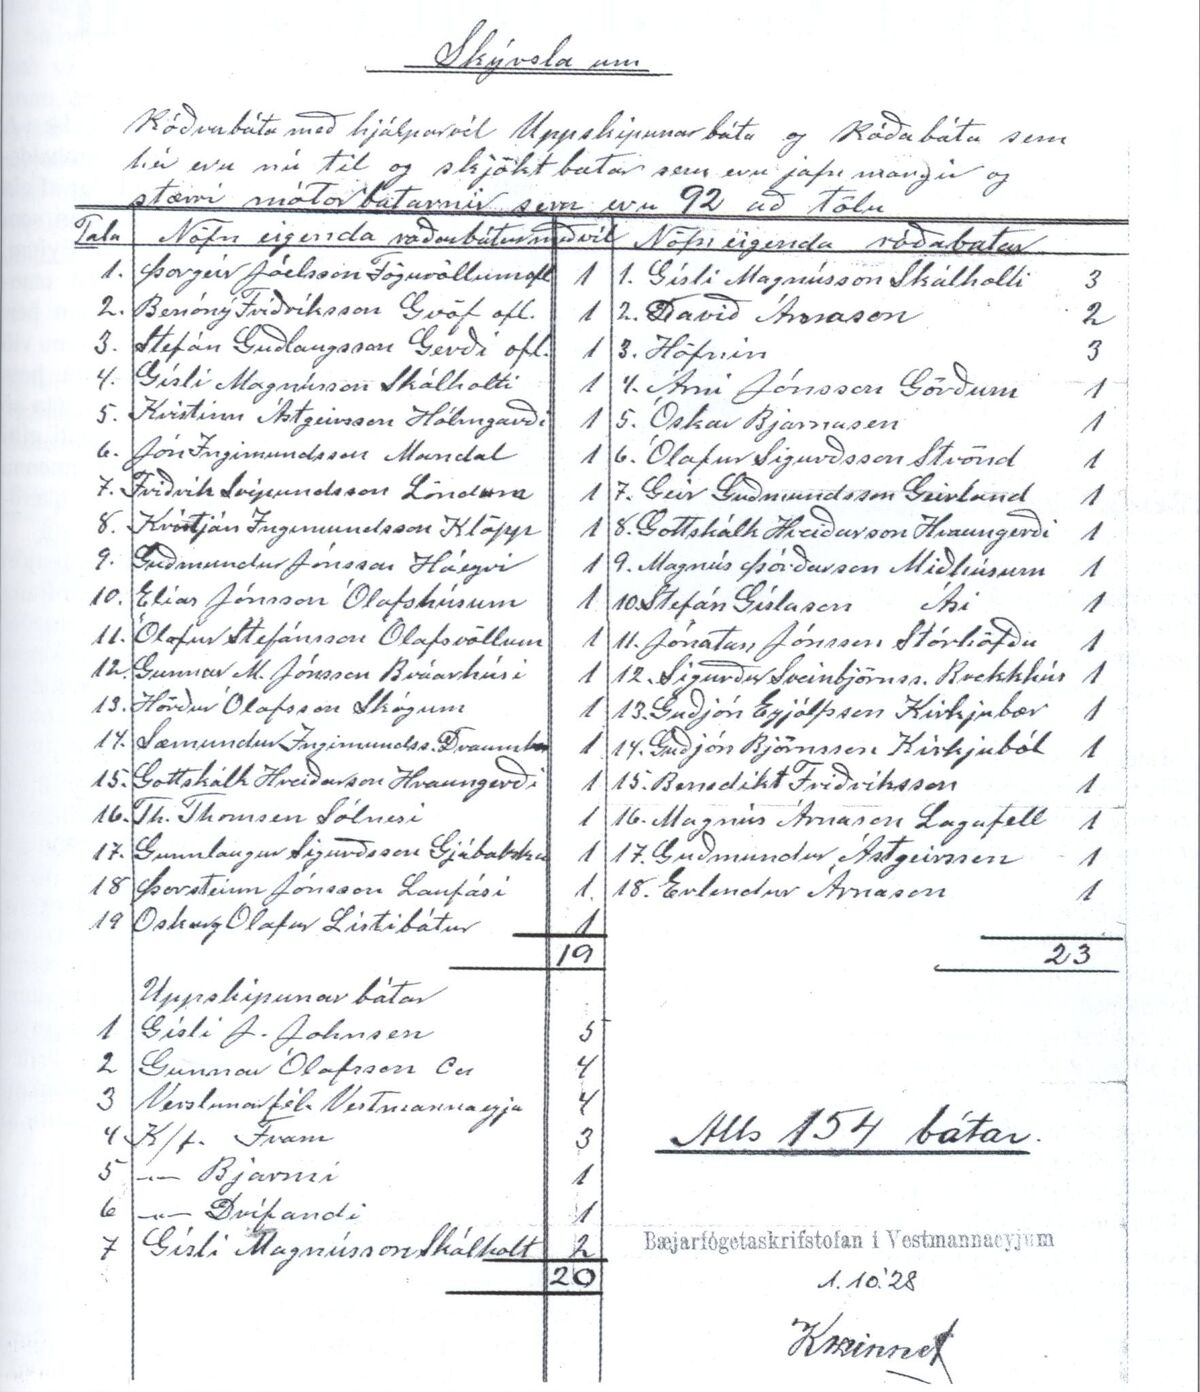 Skýrsla um
Róðrabáta með hjálparvél Uppskipunarbáta og Róðabáta sem
hér eru nú til og skjökt batar sem eru jafn margir og
stærri mótorbatarnir sem eru 92 að tölu
Tala Nöfn eigenda roðarbátur með vél
1. Þorgeir Jóelsson Fögruvöllum ofl 1
2. Benóný Friðriksson Gröf ofl. 1
3. Stefán Guðlaugsson Gerði ofl. 1
4. Gísli Magnússon Skálholti 1
5. Kristinn Ástgeirsson Hólmgarði 1
6. Jón Ingimundsson Mandal 1
7. Friðrik Svipmundsson Löndum 1
8. Kristján Ingimundsson Klöpp 1
9. Guðmundur Jónsson Háeyri 1
10. Elías Jónsson Ólafshúsum 1
11. Ólafur Stefánsson Ólafsvöllum 1
12. Gunnar M. Jónsson Brúarhúsi 1
13. Hörður Ólafsson Skógum 1
14. Sæmundur Ingimundss. 1
15. Gottskálk Hreiðarson Hraungerði 1
16. Th. Thomsen Sólnesi 1
17. Gunnlaugur Sigurðsson 1
18 Þorsteinn Jónsson Laufási 1.
19 Oskar og Olafur Listibátur 1
19
Nöfn eigenda róðabatar
1. Gísli Magnússon Skálholti 3
2. Davið Árnason 2
3. Höfnin 3
4. Árni Jónsson Görðum 1
5. Óskar Bjarnasen 1
6. Ólafur Sigurðsson Strönd 1
7. Geir Guðmundsson Geirland 1
8. Gottskálk Hreiðarson Hraungerði 1
9. Magnús Þórðarson Miðhúsum 1
10. Stefán Gíslason Ási 1
11. Jónatan Jónsson Stórhöfðu 1
12. Sigurður Sveinbjörnss. Brekkhús 1
13. Guðjón Eyjólfsson Kirkjubær 1
14. Guðjón Björnsson Kirkjuból 1
15. Benedikt Friðriksson 1
16. Magnús Árnason Lagafell 1
17. Guðmundur Ástgeirssen 1
18. Erlendur Árnason 1
23
Uppskipunar bátar
1 Gísli J. Johnsen 5
2 Gunnar Ólafsson Co 4
3 Verslunarfél. Vestmannaeyja 4
4 K/f. Fram 3
5 -"- Bjarmi 1
6 -"- Drífandi 1
7 Gísli Magnússon Skálholt 2
20
Alls 154 bátar.
Bæjarfógetaskrifstofan í Vestmannaeyjum
1.10.'28